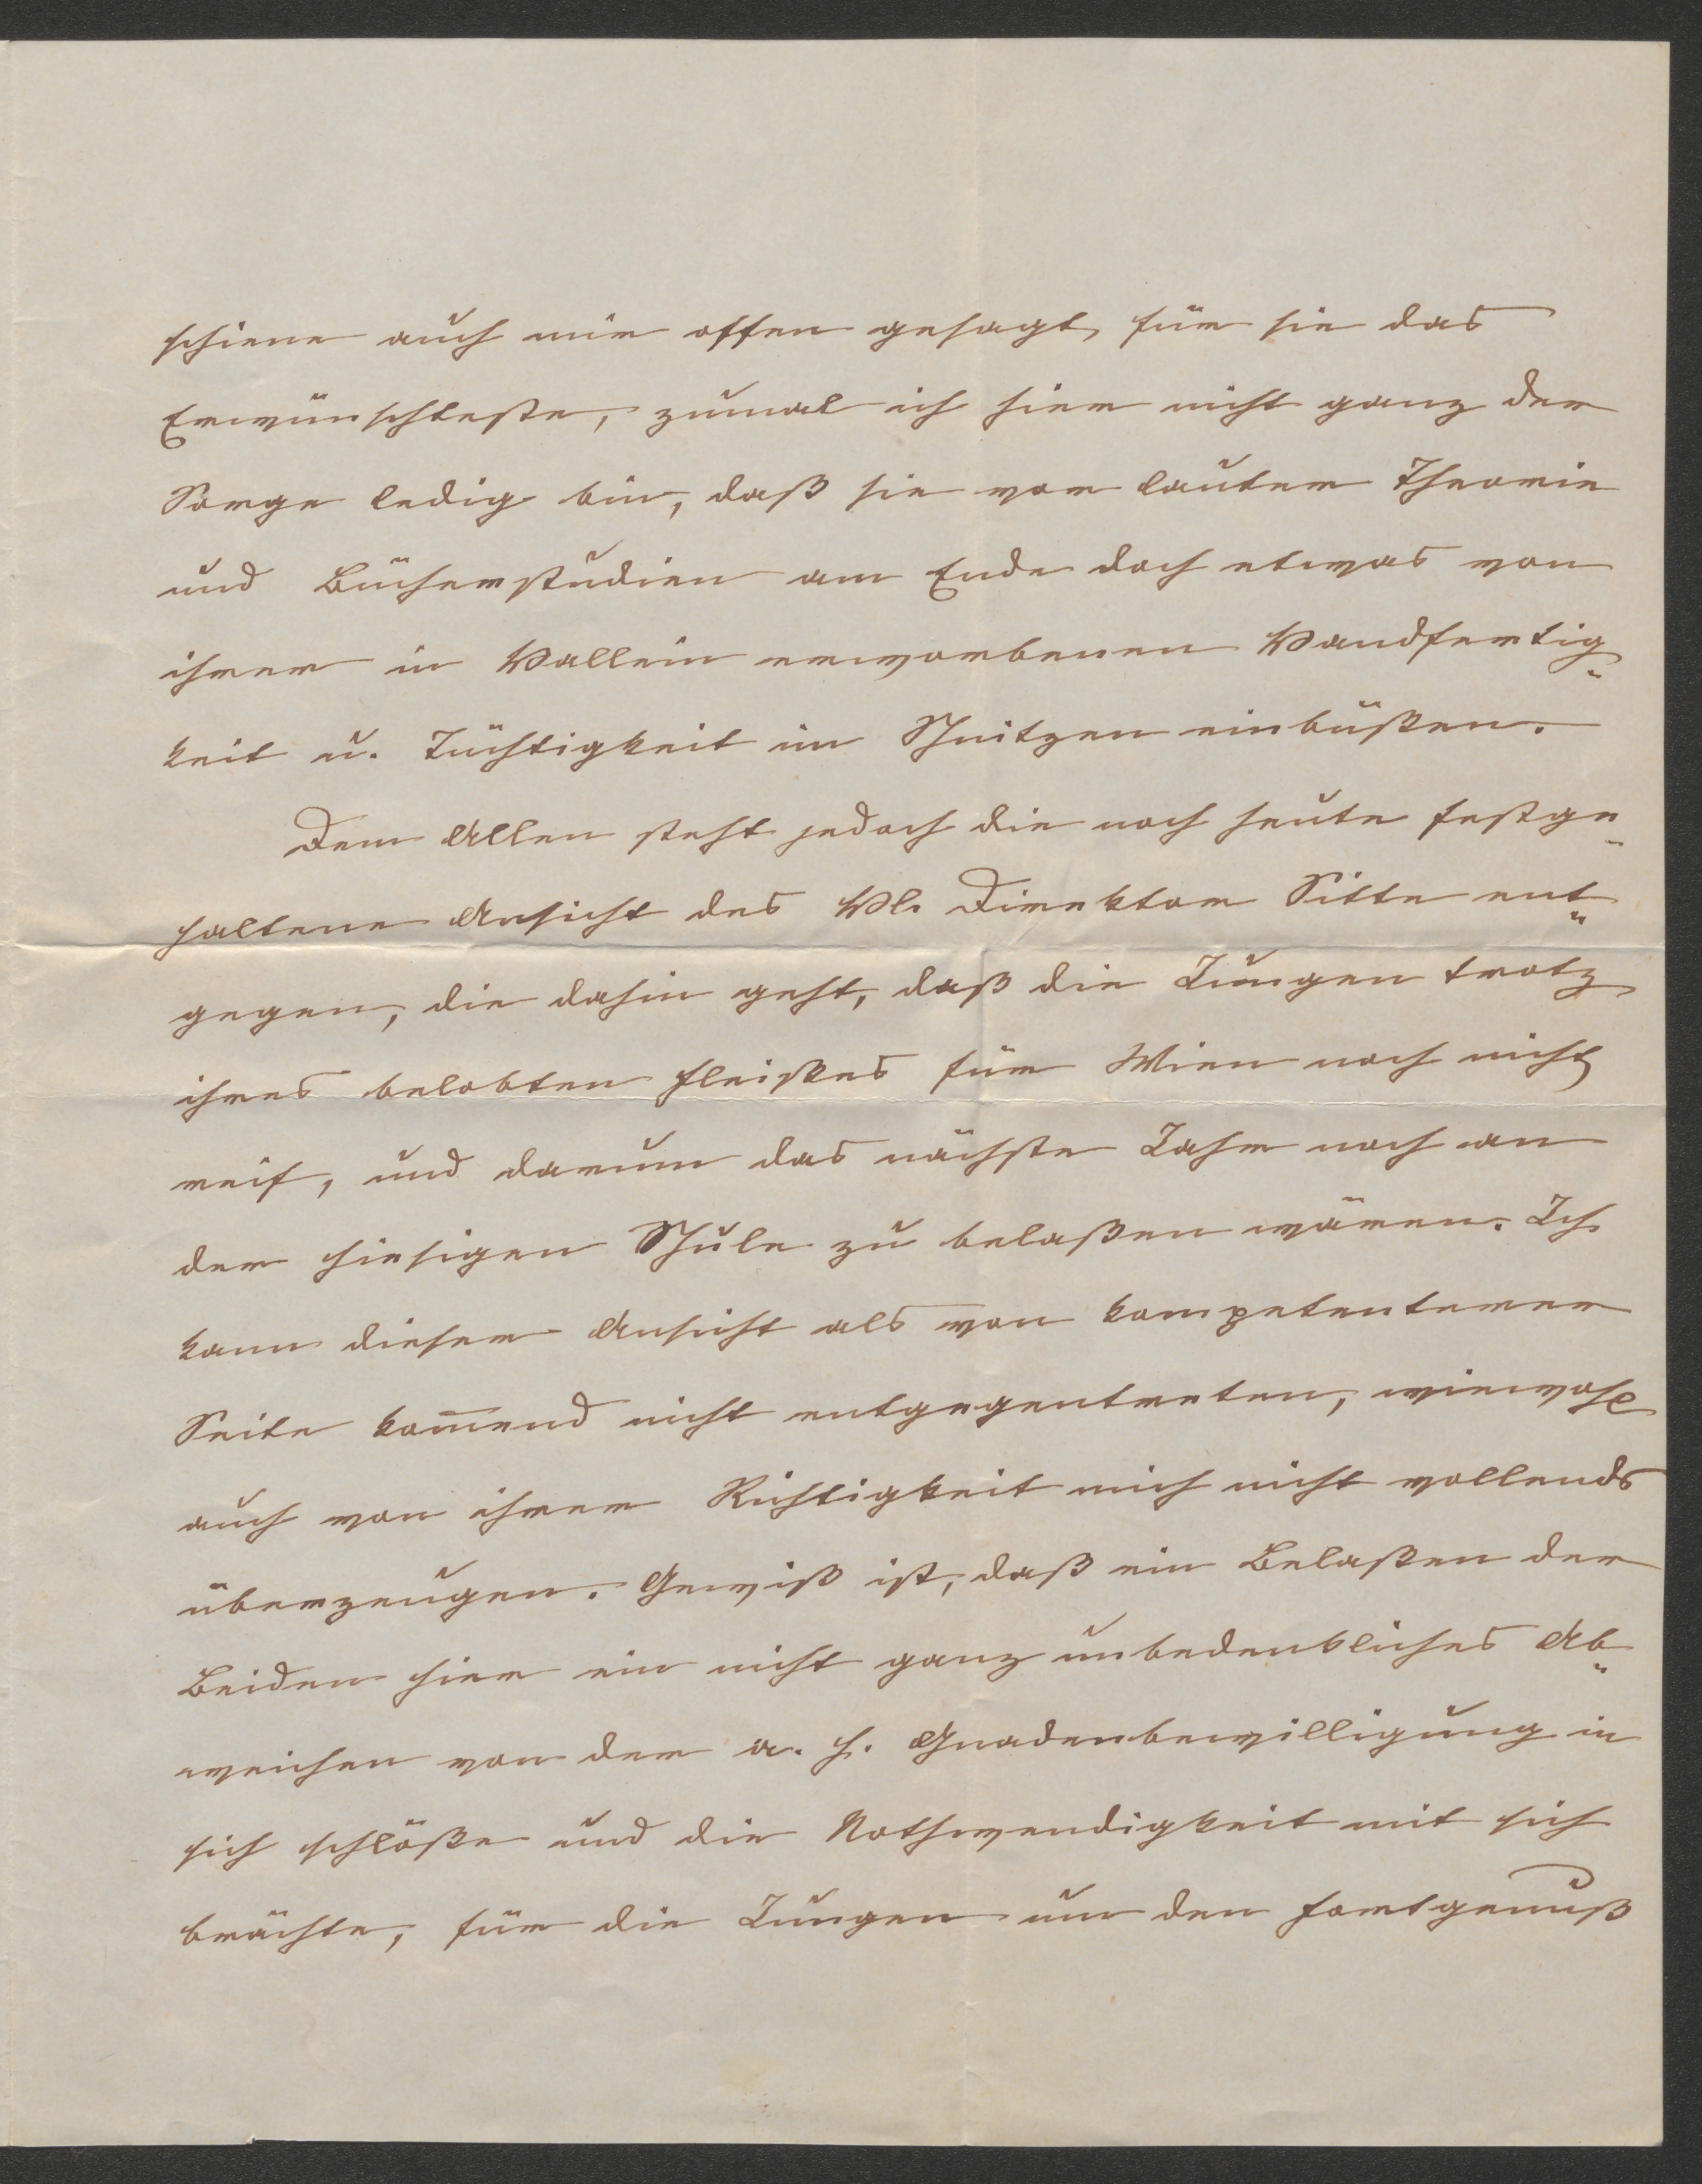 schiene auch mir offen gesagt, für sie das
Erwünschteste, zumal ich hier nicht ganz der
Sorge ledig bin, daß sie vor lauter Theorie
und Bücherstudien am Ende doch etwas von
ihrer in Hallein erworbenen Handfertig-
keit u. Tüchtigkeit im Schnitzen einbüßen.
Dem Allen steht jedoch die noch heute festge-
haltene Ansicht des Hl. Direktor Sitte ent-
gegen, die dahin geht, daß die Jungen trotz
ihres belobten Fleißes für Wien noch nicht
reif, und darum das nächste Jahr noch an
der hiesigen Schule zu belaßen wären. Ich
kann dieser Ansicht als von kompetenterer
Seite kom̅end nicht entgegentreten, wiewohl
auch von ihrer Richtigkeit mich nicht vollends
überzeugen. Gewiß ist, daß ein Belaßen der
Beiden hier ein nicht ganz unbedenkliches Ab-
weichen von der a. h. Gnadenbewilligung in
sich schlöße und die Nothwendigkeit mit sich
brächte, für die Jungen um den Fortgenuß